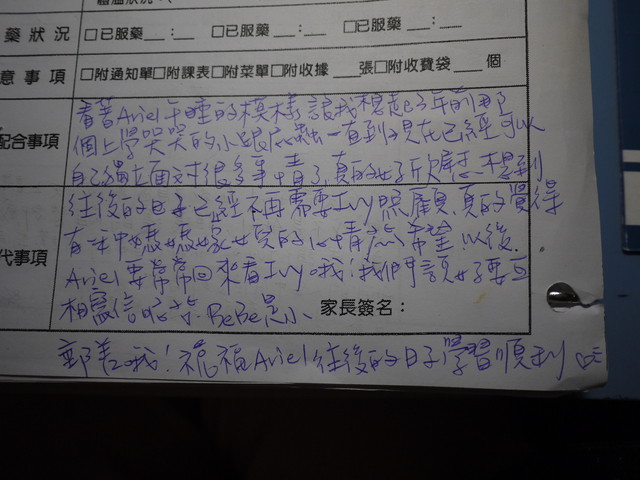 藥狀況 □已服藥__:__ □已服藥__:__ □已服藥__:__
意事項 □附通知單□附課表□附菜單□附收據___張□附收費袋___個
看著Ariel午睡的模樣讓我想起3年前那
配合事項 個上學哭哭的小跟屁蟲一直到現在已經可以
自己獨立面對很多事情了,真的好欣慰.想到
往後的日子已經不再需要Ivy照顧,真的覺得
代事項 有種媽媽嫁女兒的心情 希望以後
Ariel要常常回來看Ivy哦!我們說好要互
相寫信 BeBe是小 家長簽名：
哦!祝福Ariel往後的日子學習順利